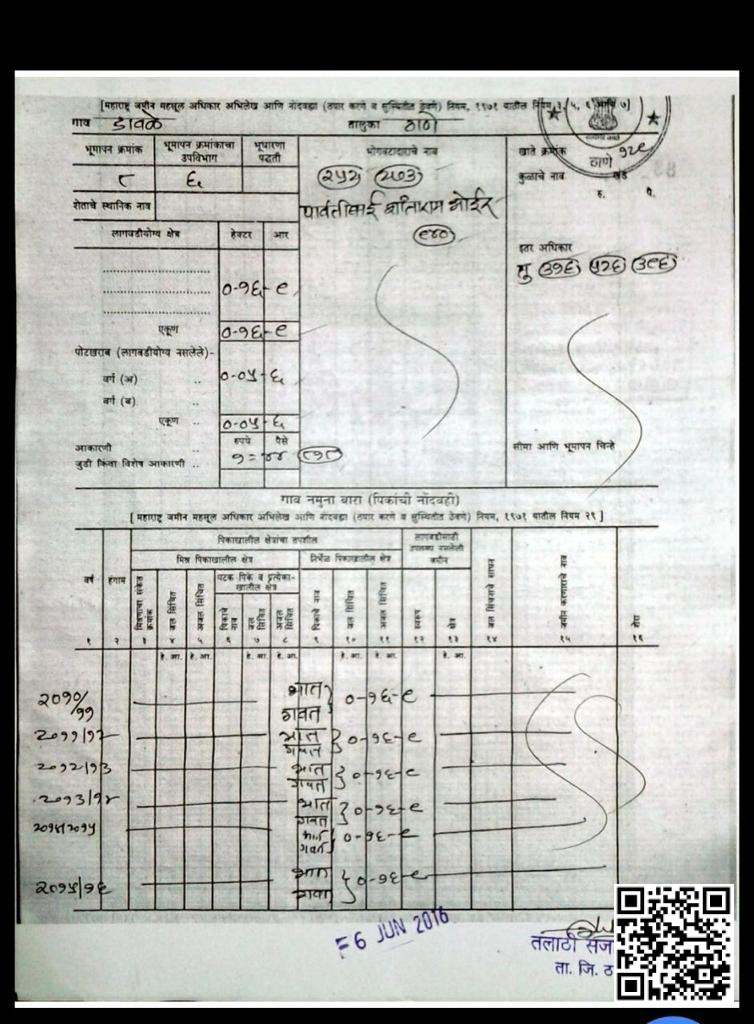 [महाराष्ट्र जमीन महसूल अधिकार अभिलेख आणि नोंदवह्या (तयार करणे व सुस्थितीत ठेवणे) नियम, १९७१ यातील नियम ३, ५, ६ आणि ७]
गाव डावले तालुका ठाणे
भूमापन क्रमांक भूमापन क्रमांकाचा उपविभाग भूधारणा पद्धती भोगवटादाराचे नाव खाते क्रमांक १२९
८ ६ २५२ २७३ ठाणे
कुळाचे नाव खंड
रु. पै.
शेताचे स्थानिक नाव पार्वतीबाई शांताराम भोईर
लागवडीयोग्य क्षेत्र हेक्टर आर ९४०
इतर अधिकार
तु ३१६ ५२६ ३९६
०-१६-९
एकूण ०-१६-९
पोटखराब (लागवडीयोग्य नसलेले)-
वर्ग (अ) .. ०-०५-६
वर्ग (ब) ..
एकूण .. ०-०५-६
रुपये पैसे
आकारणी .. १=४४
जुडी किंवा विशेष आकारणी ..
सीमा आणि भूमापन चिन्हे
गाव नमुना बारा (पिकांची नोंदवही)
[महाराष्ट्र जमीन महसूल अधिकार अभिलेख आणि नोंदवह्या (तयार करणे व सुस्थितीत ठेवणे) नियम, १९७१ यातील नियम २९]
पिकाखालील क्षेत्राचा तपशील लागवडीसाठी उपलब्ध नसलेली जमीन
मिश्र पिकाखालील क्षेत्र निर्भेळ पिकाखालील क्षेत्र
घटक पिके व प्रत्येकाखालील क्षेत्र
वर्ष हंगाम मिश्रणाचा संकेत क्रमांक जल सिंचित अजल सिंचित पिकांचे नाव जल सिंचित अजल सिंचित पिकांचे नाव जल सिंचित अजल सिंचित स्वरूप क्षेत्र जल सिंचनाचे साधन जमीन करणाराचे नाव शेरा
१ २ ३ ४ ५ ६ ७ ८ ९ १० ११ १२ १३ १४ १५ १६
हे. आर. हे. आर. हे. आर. हे. आर. हे. आर. हे. आर. हे. आर.
२०१०/११ भात गवत ०-१६-९
२०११/१२ भात गवत ०-१६-९
२०१२/१३ भात गवत ०-१६-९
२०१३/१४ भात गवत ०-१६-९
२०१४/२०१५ भात गवत ०-१६-९
२०१५/१६ भात गवत ०-१६-९
6 JUN 2016
तलाठी सज
ता. जि. ठ